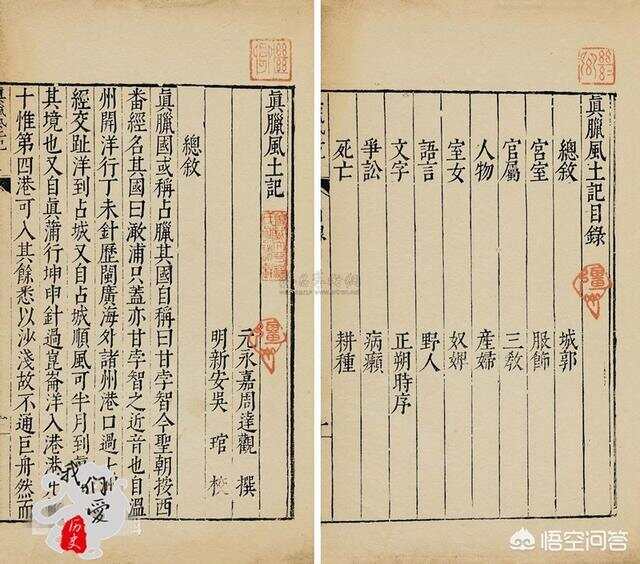 眞臘風土記目錄
總敘 城郭
宮室 服飾
官屬 三敎
人物 產婦
室女 奴婢
語言 野人
文字 正朔時序
爭訟 病癩
死亡 耕種
眞臘風土記
元永嘉周達觀 撰
明新安吳 琯 校
總敘
眞臘國或稱占臘其國自稱曰甘孛智今聖朝按西
番經名其國曰澉浦只蓋亦甘孛智之近音也自溫
州開洋行丁未針歷閩廣海外諸州港口過七
經交趾洋到占城又自占城順風可半月到
其境也又自眞蒲行坤申針過崑崙洋入港港
十惟第四港可入其餘悉以沙淺故不通巨舟然而
我們愛
历史
悟空问答